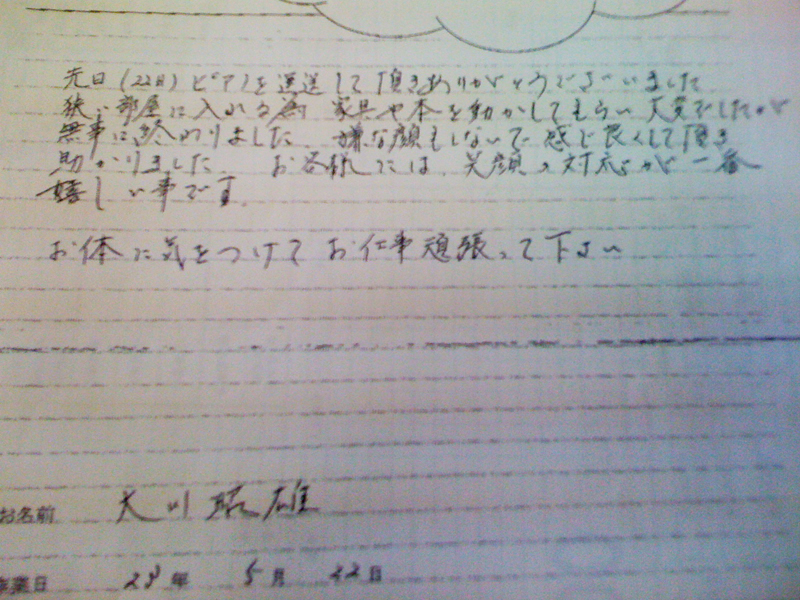 先日(22日)ピアノを運送して頂きありがとうございました
狭い部屋に入れる為 家具や本を動かしてもらい大変でしたが
無事に終わりました 嫌な顔もしないで感じ良くして頂き
助かりました お客様には、笑顔の対応が一番
嬉しい事です。
お体に気をつけてお仕事頑張って下さい
お名前 大川昭雄
作業日 23年 5月 22日